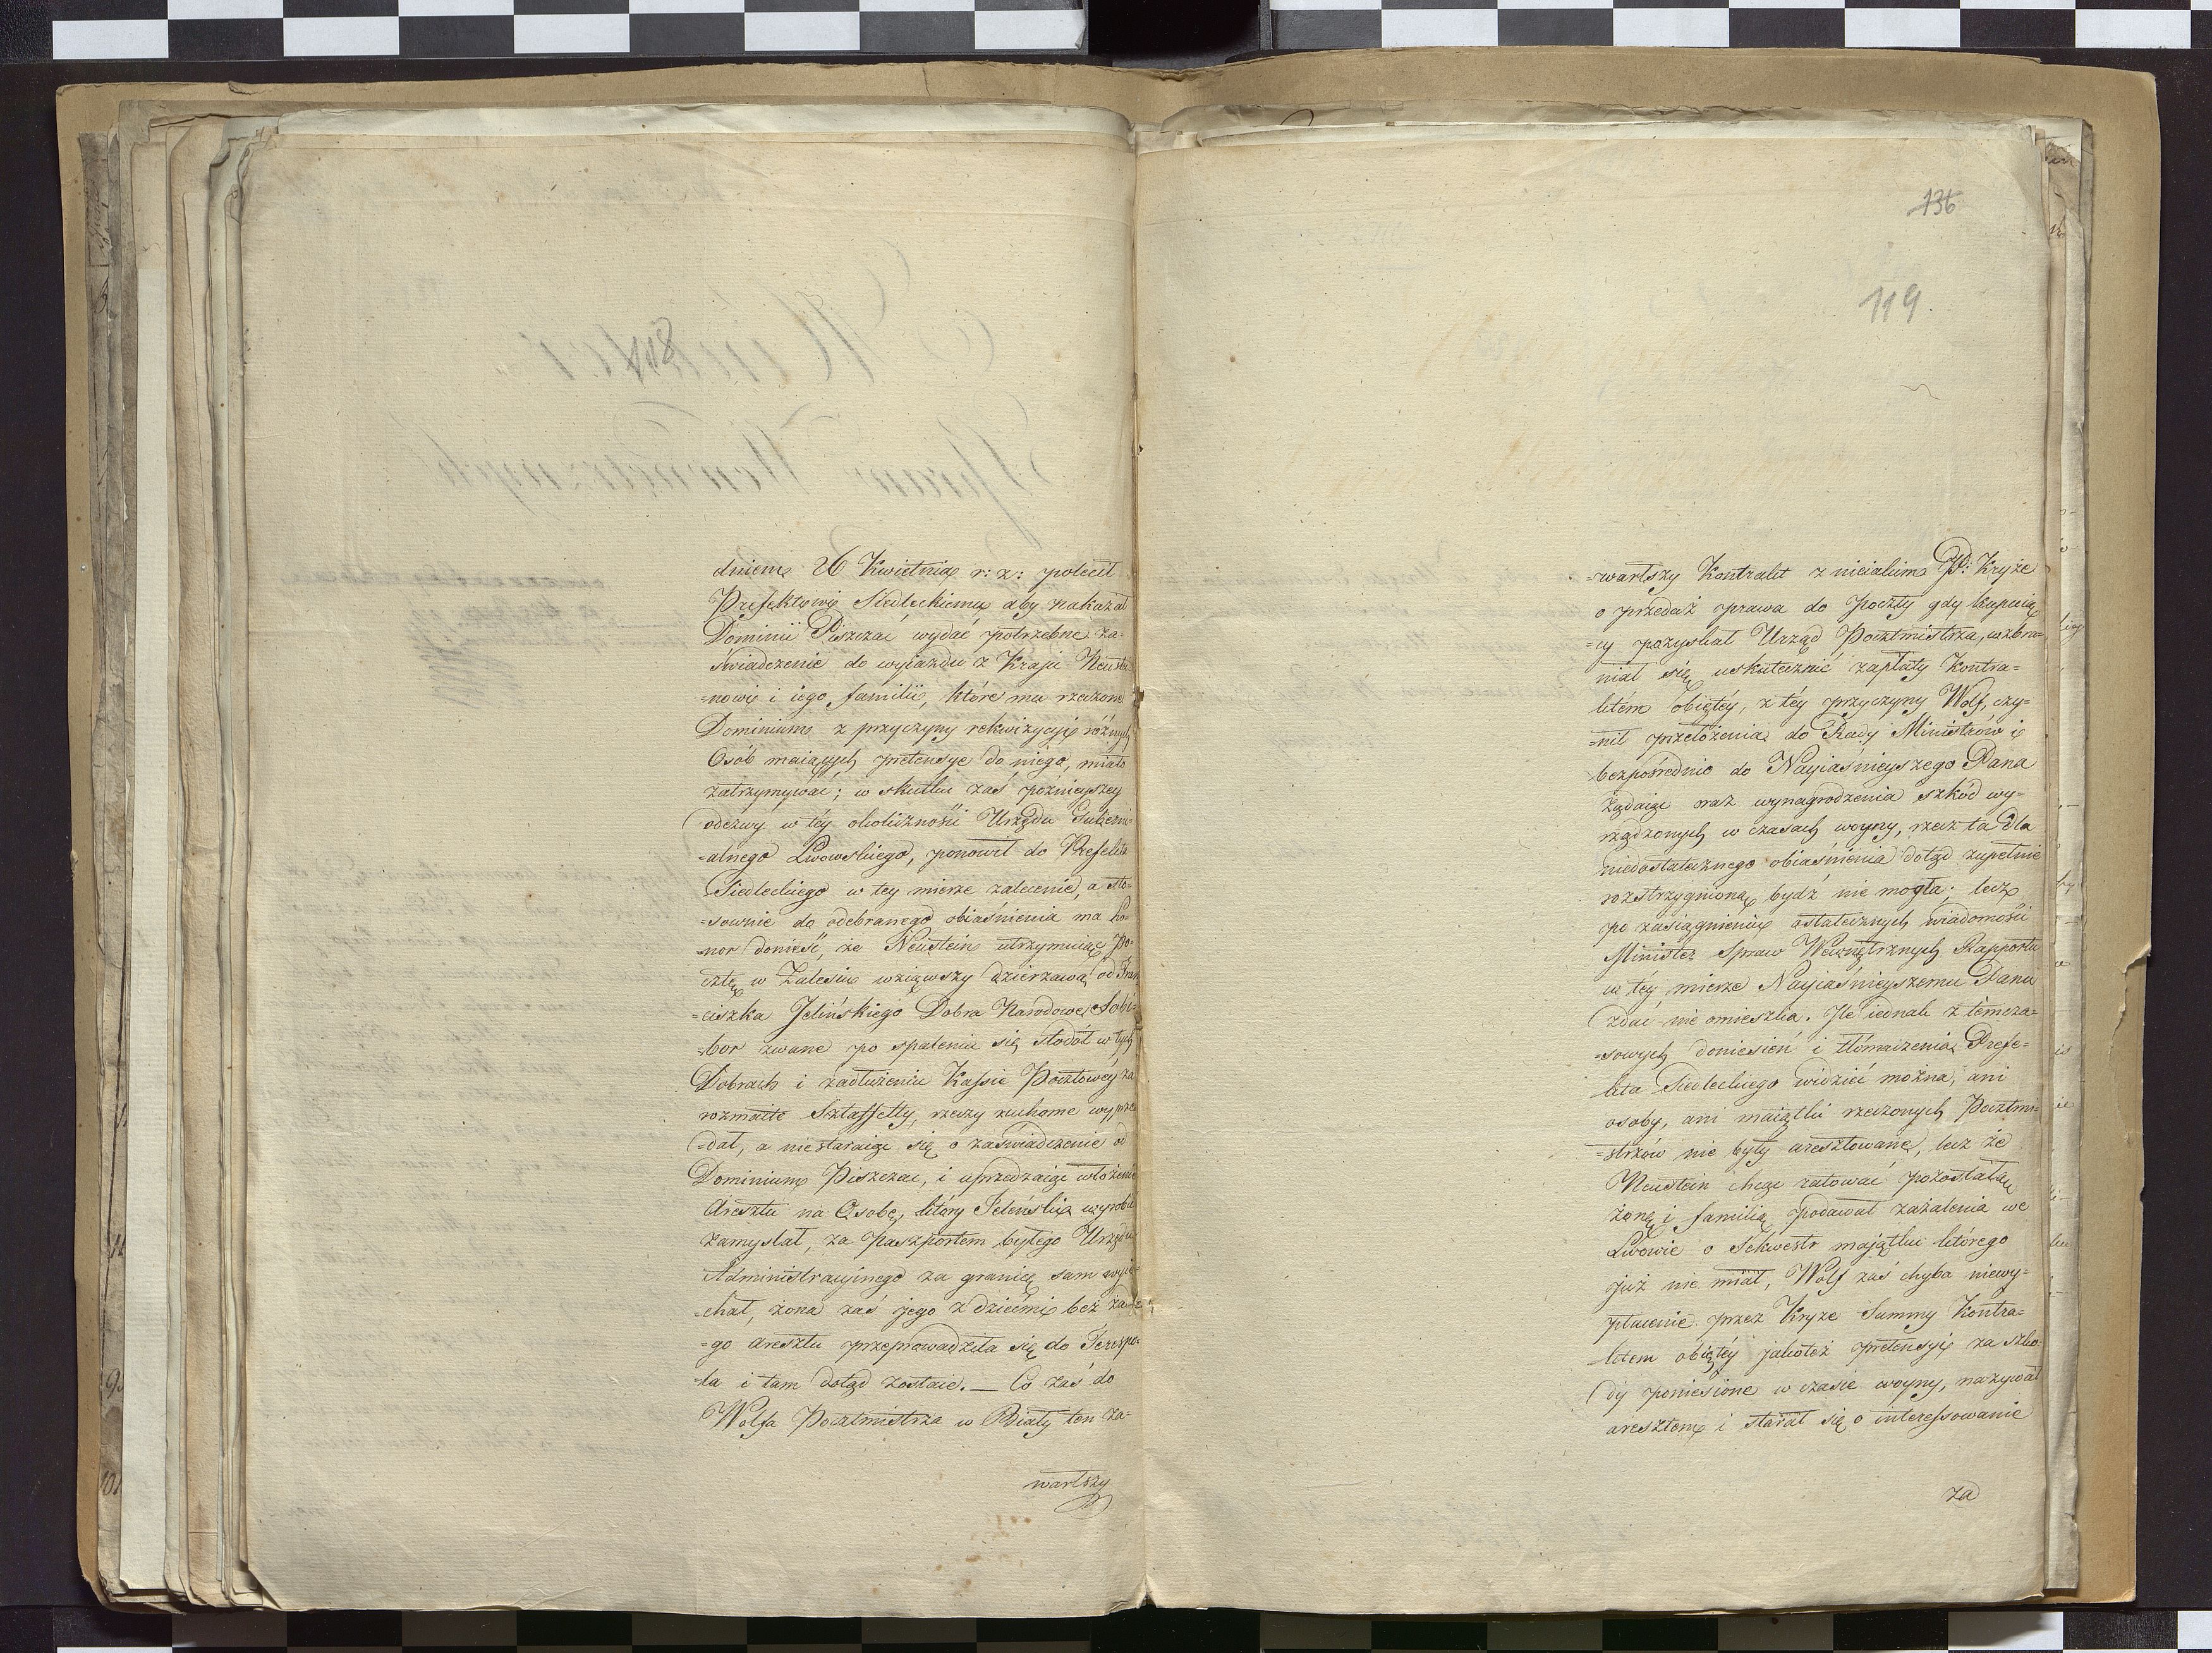 118
dniem 26 Kwietnia r: z: polecił
Prefektowi Siedleckiemu aby nakazał
Dominii Piszczac wydać potrzebne za-
świadczenie do wyjazdu z Kraju Neuste
=nowi i iego familii, które mu rzeczone
Dominium z przyczyny rekwizycyi różnych
Osób maiących pretensye do niego, miało
zatrzymywać; w skutku zaś poźnieyszey
odezwy w téy okoliczności Urzędu Guberni-
=alnego Lwowskiego, ponowił do Prefekta
Siedleckiego w tey mierze zalecenie, a sto=
=sownie do odebranego obiaśnienia ma ho=
=nor donieść, że Neustein utrzymuiąc po=
cztę w Zalesiu wziąwszy dzierżawą od Fran
=ciszka Jelińskiego Dobra Narodowe Sobi=
=bor zwane po spaleniu się stodół w tych
Dobrach i zadłużeniu Kassie Pocztowéy za
rozmaite Sztaffetty, rzeczy ruchome wyprze
=dał, a niestaraiąc się o zaświadczenie od
Dominium Piszczac, i uprzedzaiąc włożenie
Aresztu na Osobę, który Jeleński wyrobić
zamyslał, za Paszportem byłego Urzędu
Administracyjnego za granicę sam wyie=
=chał, żona zaś jego z dziećmi bez żadne
=go aresztu przeprowadziła się do Terespo=
=la i tam dotąd zostaie. — Co zaś do
Wolfa Pocztmistrza w Biały ten za=
wartszy
136
119
=wartszy Kontrakt z nieiakim P: Kryże
o przedaż prawa do Poczty gdy kupuią
=cy pozyskał Urząd Pocztmistrza, wzbra=
niał się uskutecznić zapłaty Kontra=
ktém obiętéy, z téy przyczyny Wolf, czy=
=nił przełożenia do Rady Ministrów i
bezpośrednio do Nayiaśnieyszego Pana
żądaiąc oraz wynagrodzenia szkód wy=
rządzonych w czasach woyny, rzecz ta dla
niedostatecznego obiaśnienia dotąd zupełnie
rozstrzygnioną bydź nie mogła. lecz
po zasiągnieniu ostatecznych wiadomości
Minister Spraw Wewnętrznych Rapportu
w téy mierze Nayiaśnieyszemu Panu
zdać nie omieszka. Ile iednak z tymcza=
=sowych doniesień i tłómaczenia Prefe=
kta Siedleckiego widzieć można, ani
osoby, ani maiątki rzeczonych Pocztmi=
=strzów nie były aresztowane, lecz że
Neustein chcąc ratować pozostałą
żonę i familią podawał zażalenia we
Lwowie o Sekwestr majątku którego
już nie miał, Wolf zaś chyba niewy=
płacenie przez Kryże Summy Kontra=
ktem obiętéy jakoteż pretensyi za szko
dy poniesione w czasie woyny, nazywał
aresztem i starał się o interessowanie
za